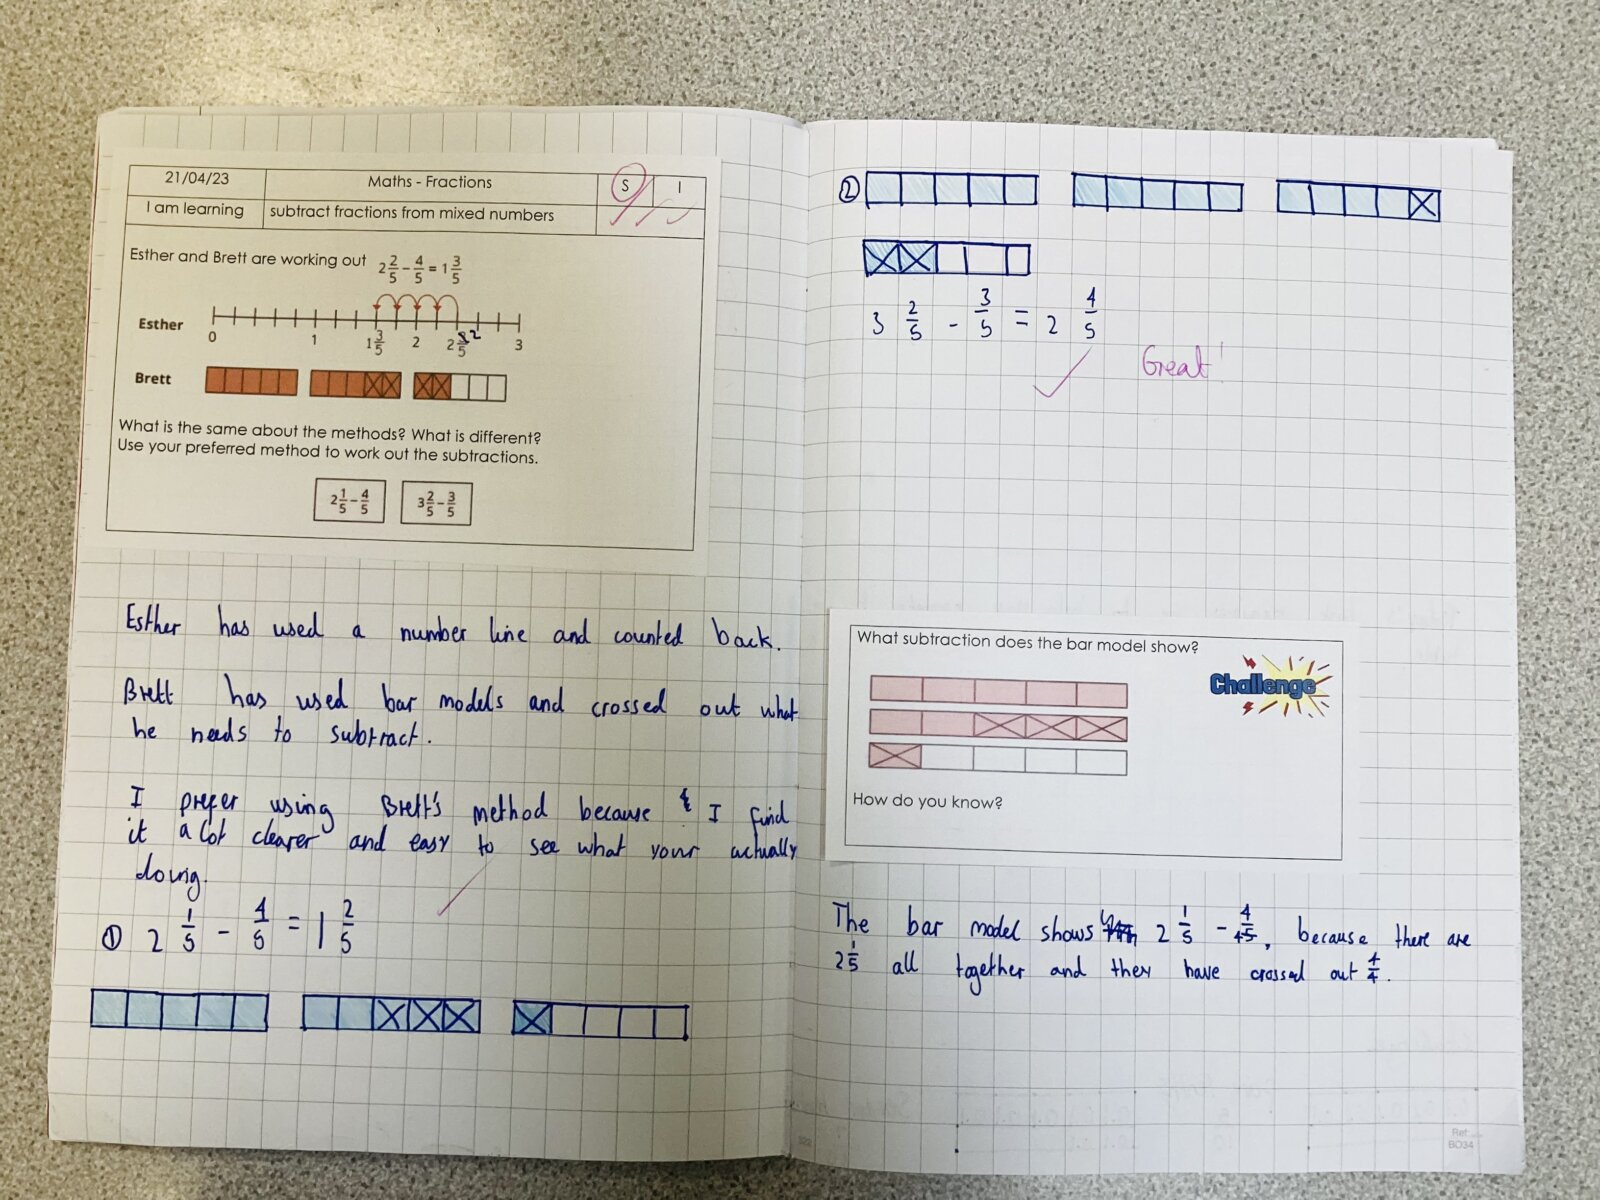 21/04/23 Maths - Fractions S I
I am learning subtract fractions from mixed numbers
Esther and Brett are working out 2 2/5 - 4/5 = 1 3/5
Esther
0 1 1 3/5 2 2 2/5 3
Brett
What is the same about the methods? What is different?
Use your preferred method to work out the subtractions.
2 1/5 - 4/5 3 2/5 - 3/5
Esther has used a number line and counted back.
Brett has used bar models and crossed out what
he needs to subtract.
I prefer using Brett's method because I find
it a lot clearer and easy to see what your actually
doing.
① 2 1/5 - 4/5 = 1 2/5
②
3 2/5 - 3/5 = 2 4/5
Great!
What subtraction does the bar model show?
Challenge
How do you know?
The bar model shows 2 1/5 - 4/5, because there are
2 1/5 all together and they have crossed out 4/4.
Ref:
BO34